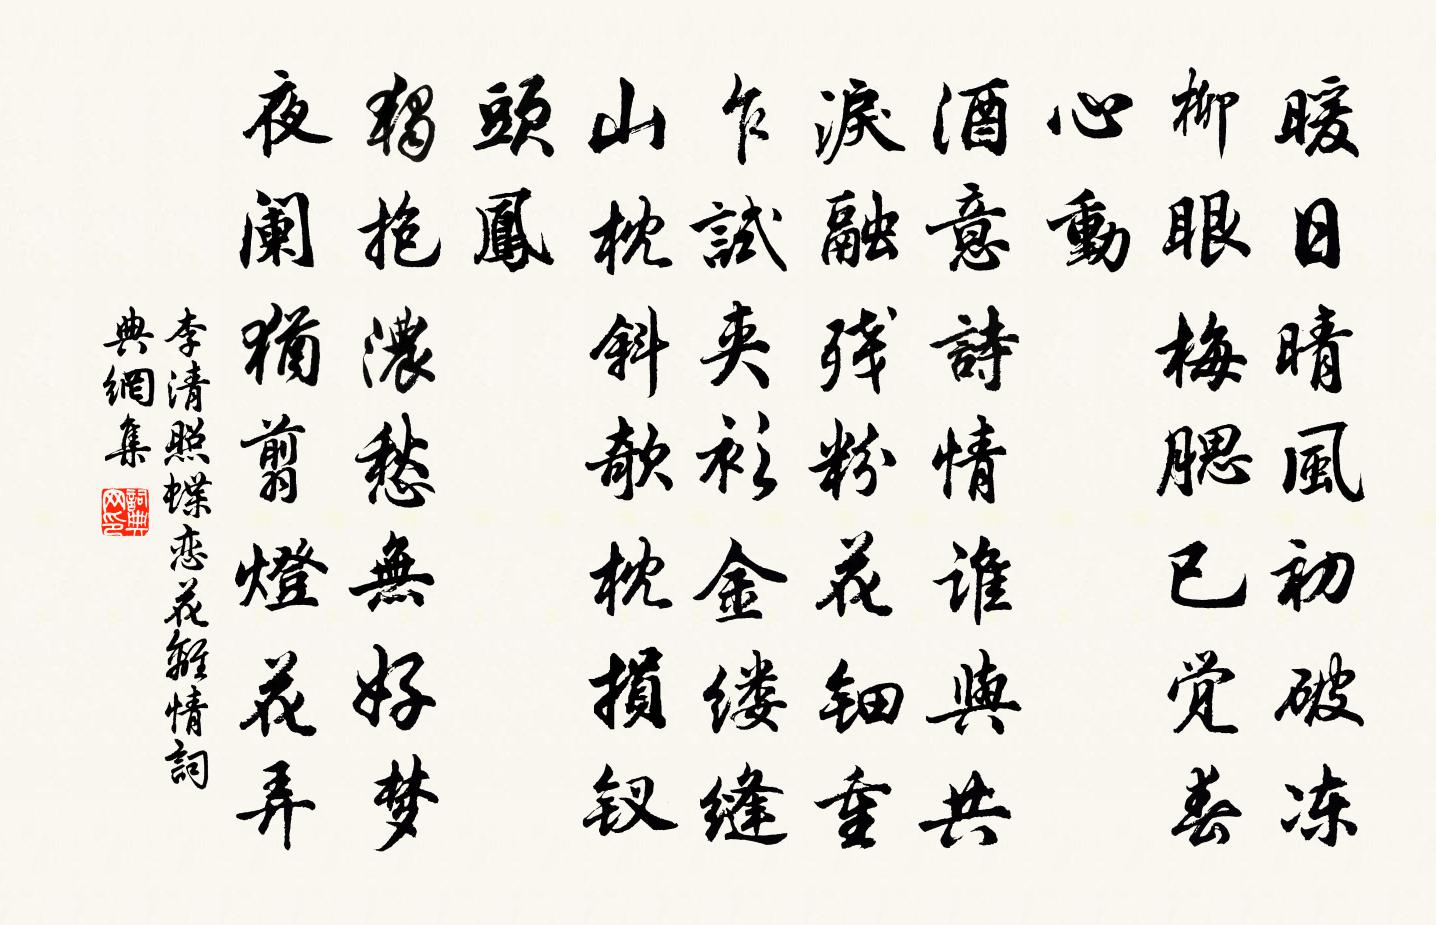 暖日晴風初破冻
柳眼梅腮已覚春
心動
酒意詩情谁與共
淚融残粉花钿重
乍試夹衫金缕缝
山枕斜欹枕損钗
頭鳳
獨抱濃愁無好梦
夜阑猶翦燈花弄
李清照蝶恋花離情詞
典網集
詞典网印